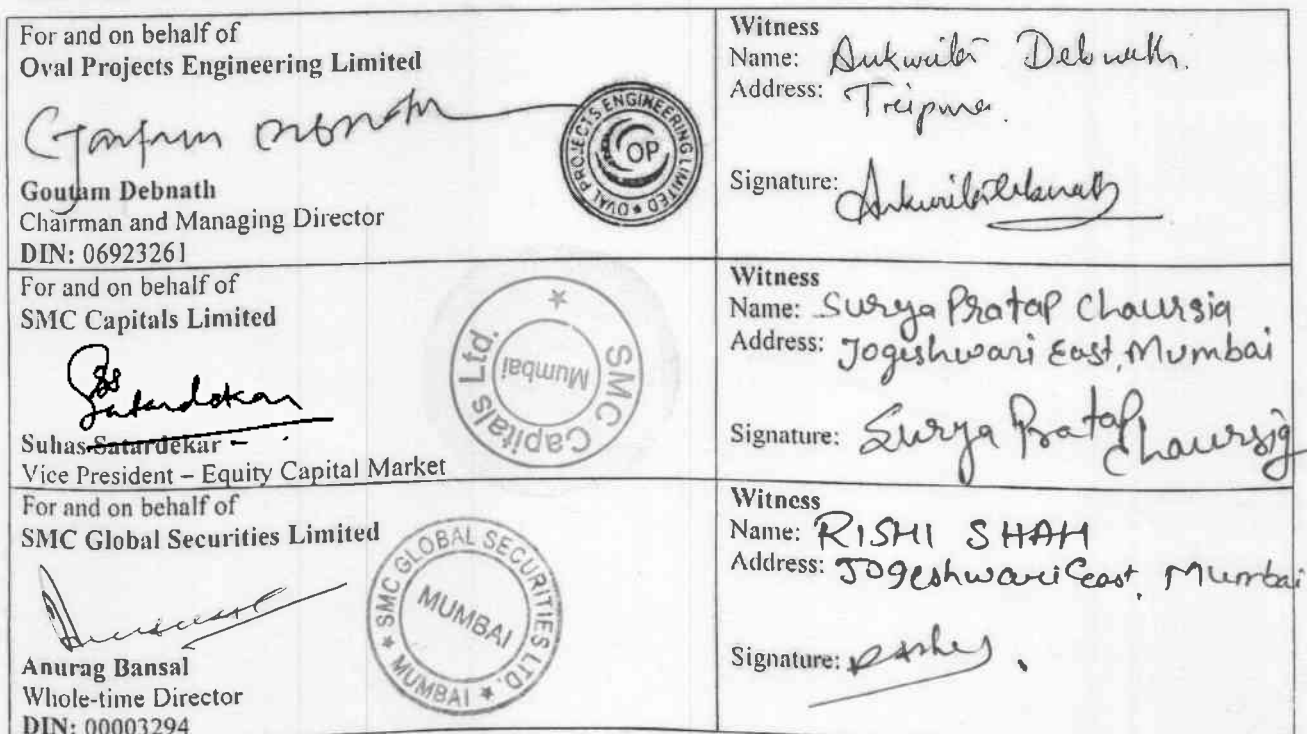 For and on behalf of
Oval Projects Engineering Limited
OVAL PROJECTS ENGINEERING LIMITED
OP
Goutam Debnath
Chairman and Managing Director
DIN: 06923261
Witness
Name: Debnath.
Address: Tripura.
Signature:
For and on behalf of
SMC Capitals Limited
SMC Capitals Ltd.
Mumbai
Satardekar
Suhas Satardekar
Vice President – Equity Capital Market
Witness
Name: Surya Pratap Chaursia
Address: Jogeshwari East, Mumbai
Signature: Surya Pratap Chaursia
For and on behalf of
SMC Global Securities Limited
SMC GLOBAL SECURITIES LTD.
MUMBAI
MUMBAI
Anurag Bansal
Whole-time Director
DIN: 00003294
Witness
Name: RISHI SHAH
Address: Jogeshwari east, Mumbai
Signature: